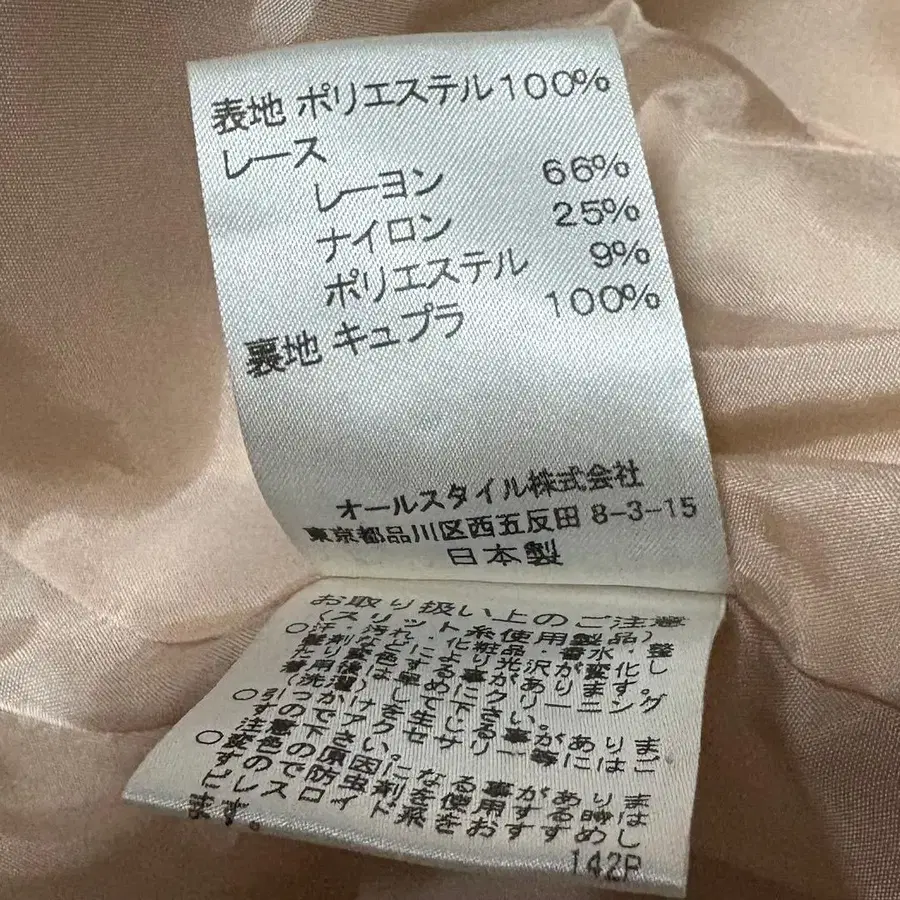 表地 ポリエステル100%
レース
レーヨン 66%
ナイロン 25%
ポリエステル 9%
裏地 キュプラ 100%
オールスタイル株式会社
東京都品川区西五反田 8-3-15
日本製
お取り扱い上のご注意
(スリット糸使用製品)
○汗・汚れ・化粧品・香水・整
髪剤などにより光沢が変化し
たり変色する事があります。
着用後は早めにクリーニング
(洗濯)をして下さい。
○引っかけを生じる事がありま
すのでアクセサリー等にはご
注意下さい。
○変色の原因になる事がありま
すので防虫剤を使用する時は
ピレスロイド系をおすすめし
ます。
142P